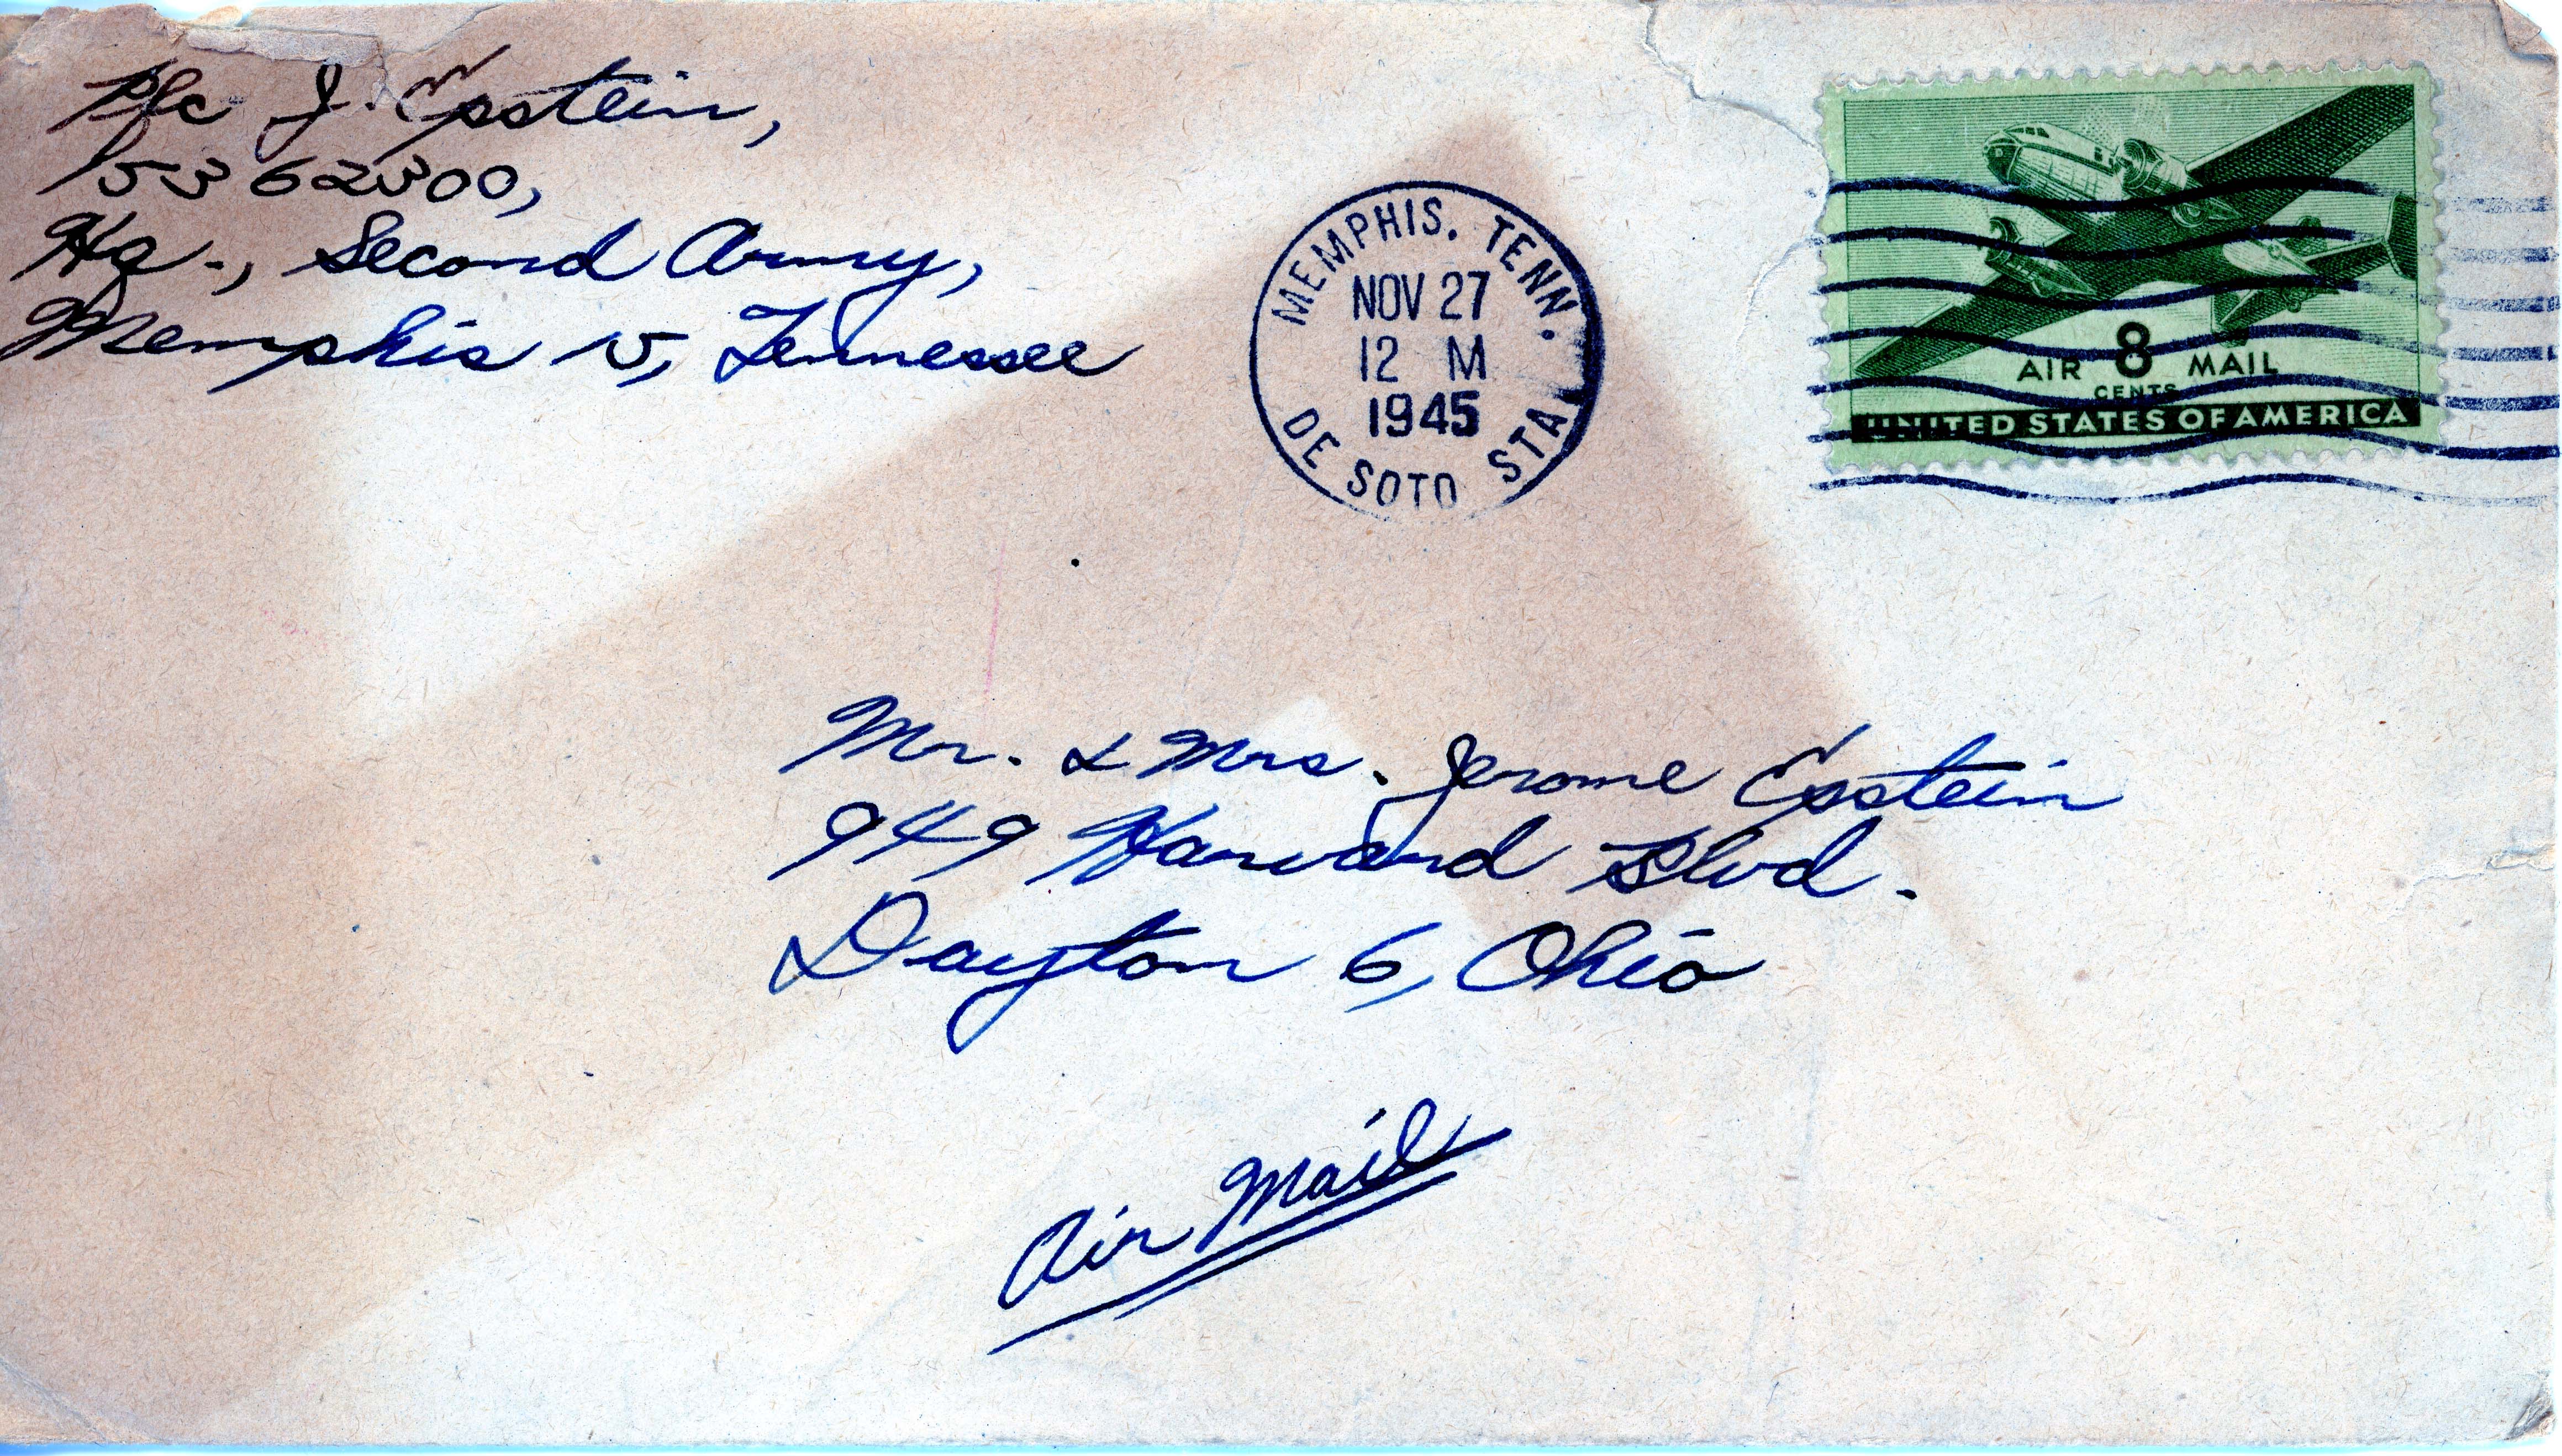 Pfc J. Epstein,
15362300,
Hq., Second Army,
Memphis 15, Tennessee
MEMPHIS. TENN.
NOV 27
12 M
1945
DE SOTO STA.
AIR 8 MAIL
CENTS
UNITED STATES OF AMERICA
Mr. & Mrs. Jerome Epstein
949 Harvard Blvd.
Dayton 6, Ohio
Air Mail